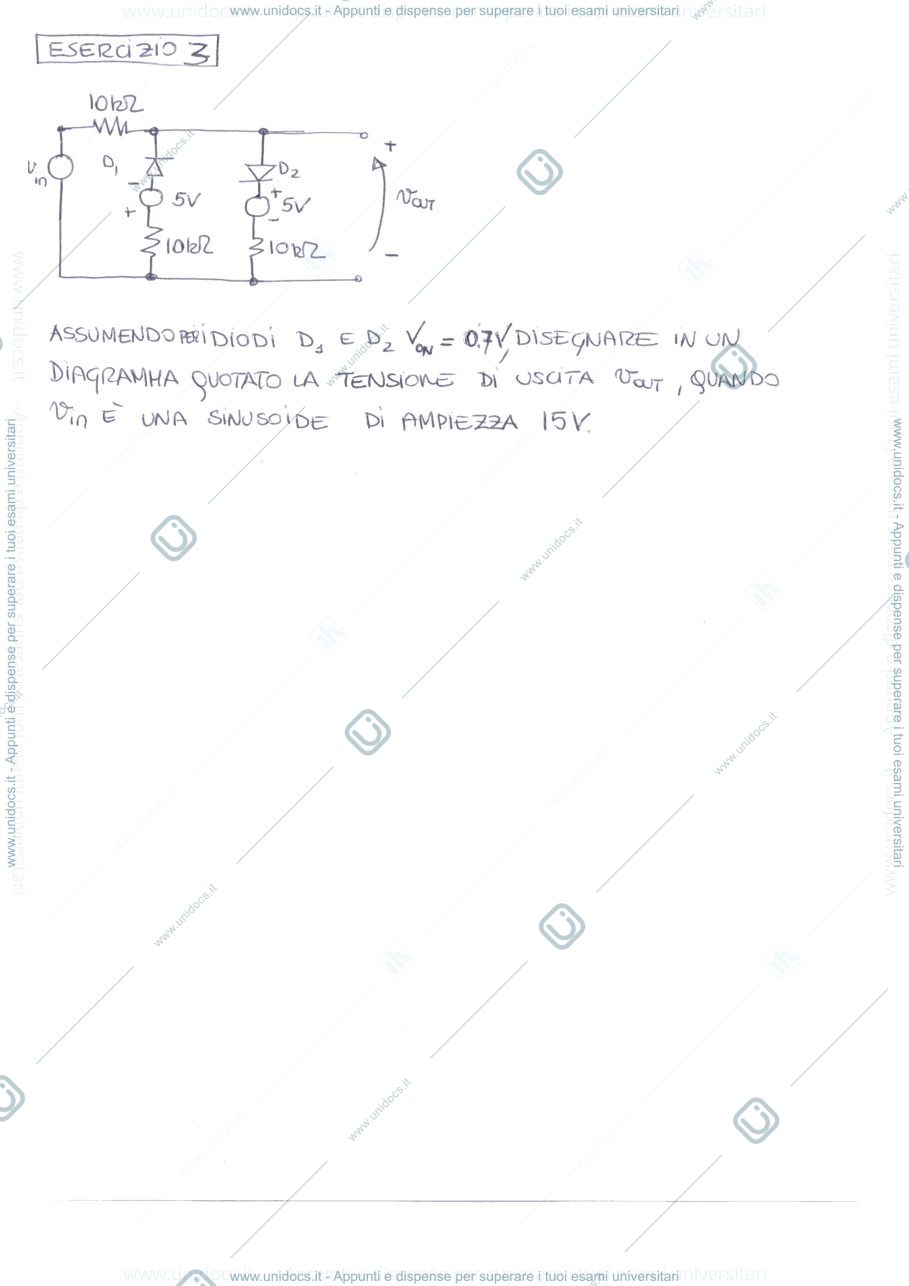 www.unidocs.it - Appunti e dispense per superare i tuoi esami universitari
ESERCIZIO 3
10kΩ
Vin
D1
-
+
5V
10kΩ
D2
+
5V
-
10kΩ
+
VOUT
-
ASSUMENDO PER I DIODI D1 E D2 VON = 0.7V, DISEGNARE IN UN
DIAGRAMMA QUOTATO LA TENSIONE DI USCITA VOUT, QUANDO
Vin È UNA SINUSOIDE DI AMPIEZZA 15V.
www.unidocs.it - Appunti e dispense per superare i tuoi esami universitari
www.unidocs.it - Appunti e dispense per superare i tuoi esami universitari
www.unidocs.it
www.unidocs.it
www.unidocs.it
www.unidocs.it
www.unidocs.it
www.unidocs.it
www.unidocs.it - Appunti e dispense per superare i tuoi esami universitari